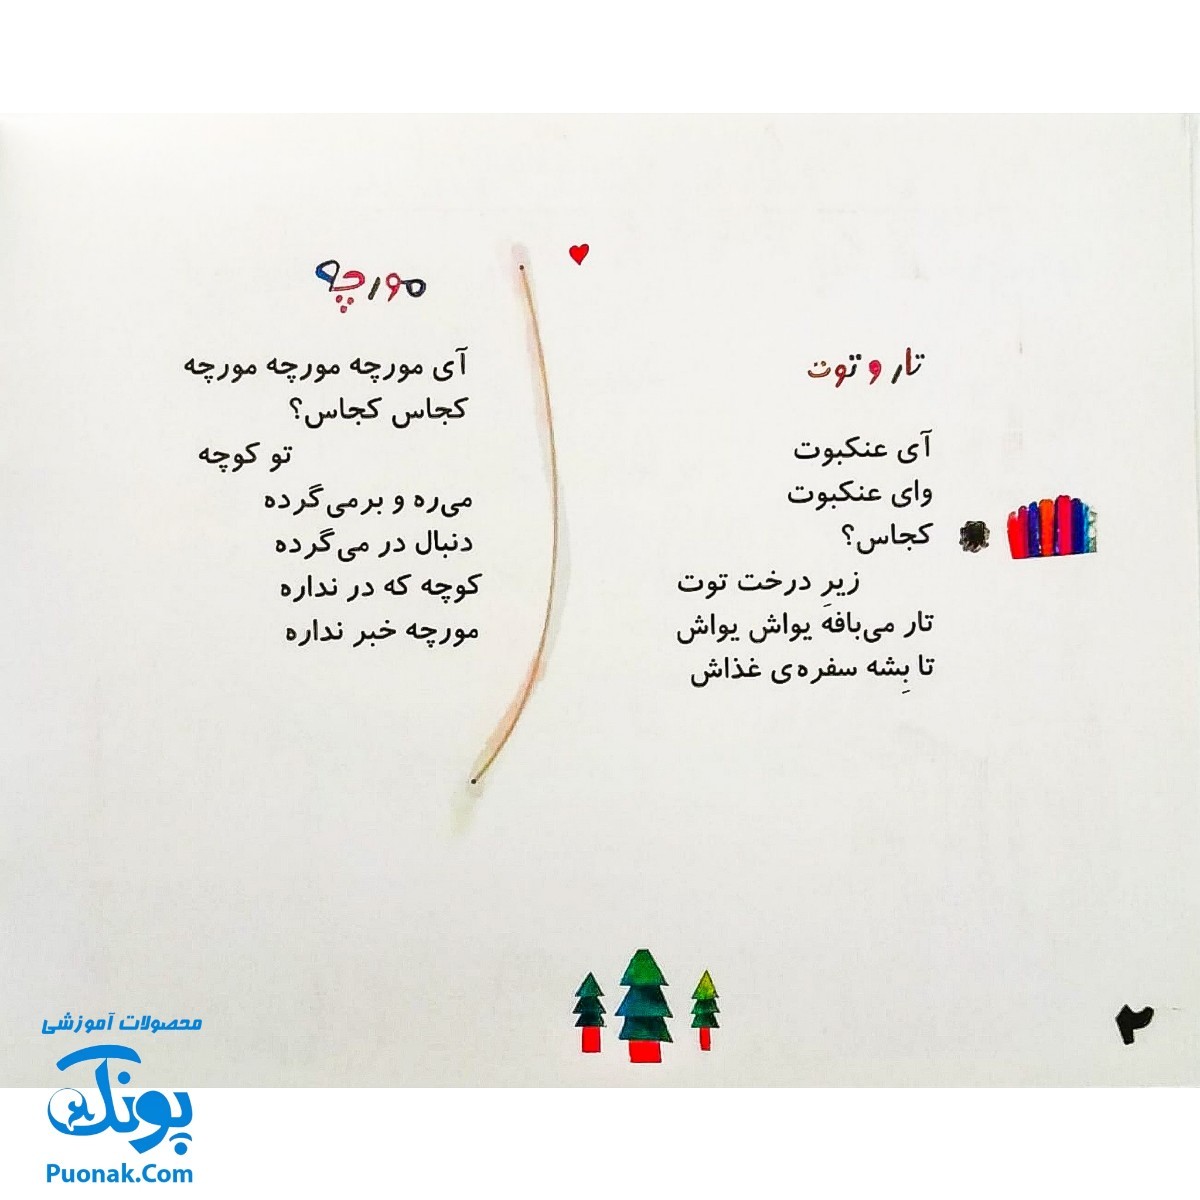 تار و توت
آی عنکبوت
وای عنکبوت
کجاس؟
زیرِ درخت توت
تار می‌بافه یواش یواش
تا بِشه سفره‌ی غذاش
مورچه
آی مورچه مورچه مورچه
کجاس کجاس؟
تو کوچه
می‌ره و برمی‌گرده
دنبال در می‌گرده
کوچه که در نداره
مورچه خبر نداره
۲
محصولات آموزشی
پونک
Puonak.Com